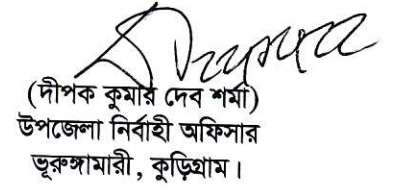 (দীপক কুমার দেব শর্মা)
উপজেলা নির্বাহী অফিসার
ভূরুঙ্গামারী, কুড়িগ্রাম।